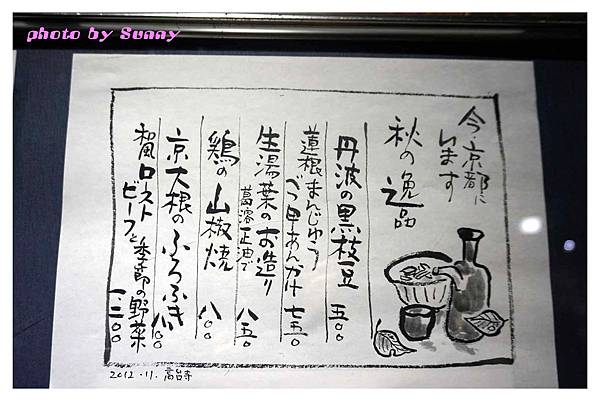 photo by Sunny
今、京都に
います
秋の逸品
丹波の黒枝豆 五〇〇
蓮根まんじゅう
べっ甲あんかけ 七五〇
生湯葉のお造り
八五〇
鶏の山椒焼 八〇〇
京大根のふろふき 八〇〇
和風ローストビーフと季節の野菜 一、二〇〇
2012.11. 高台寺